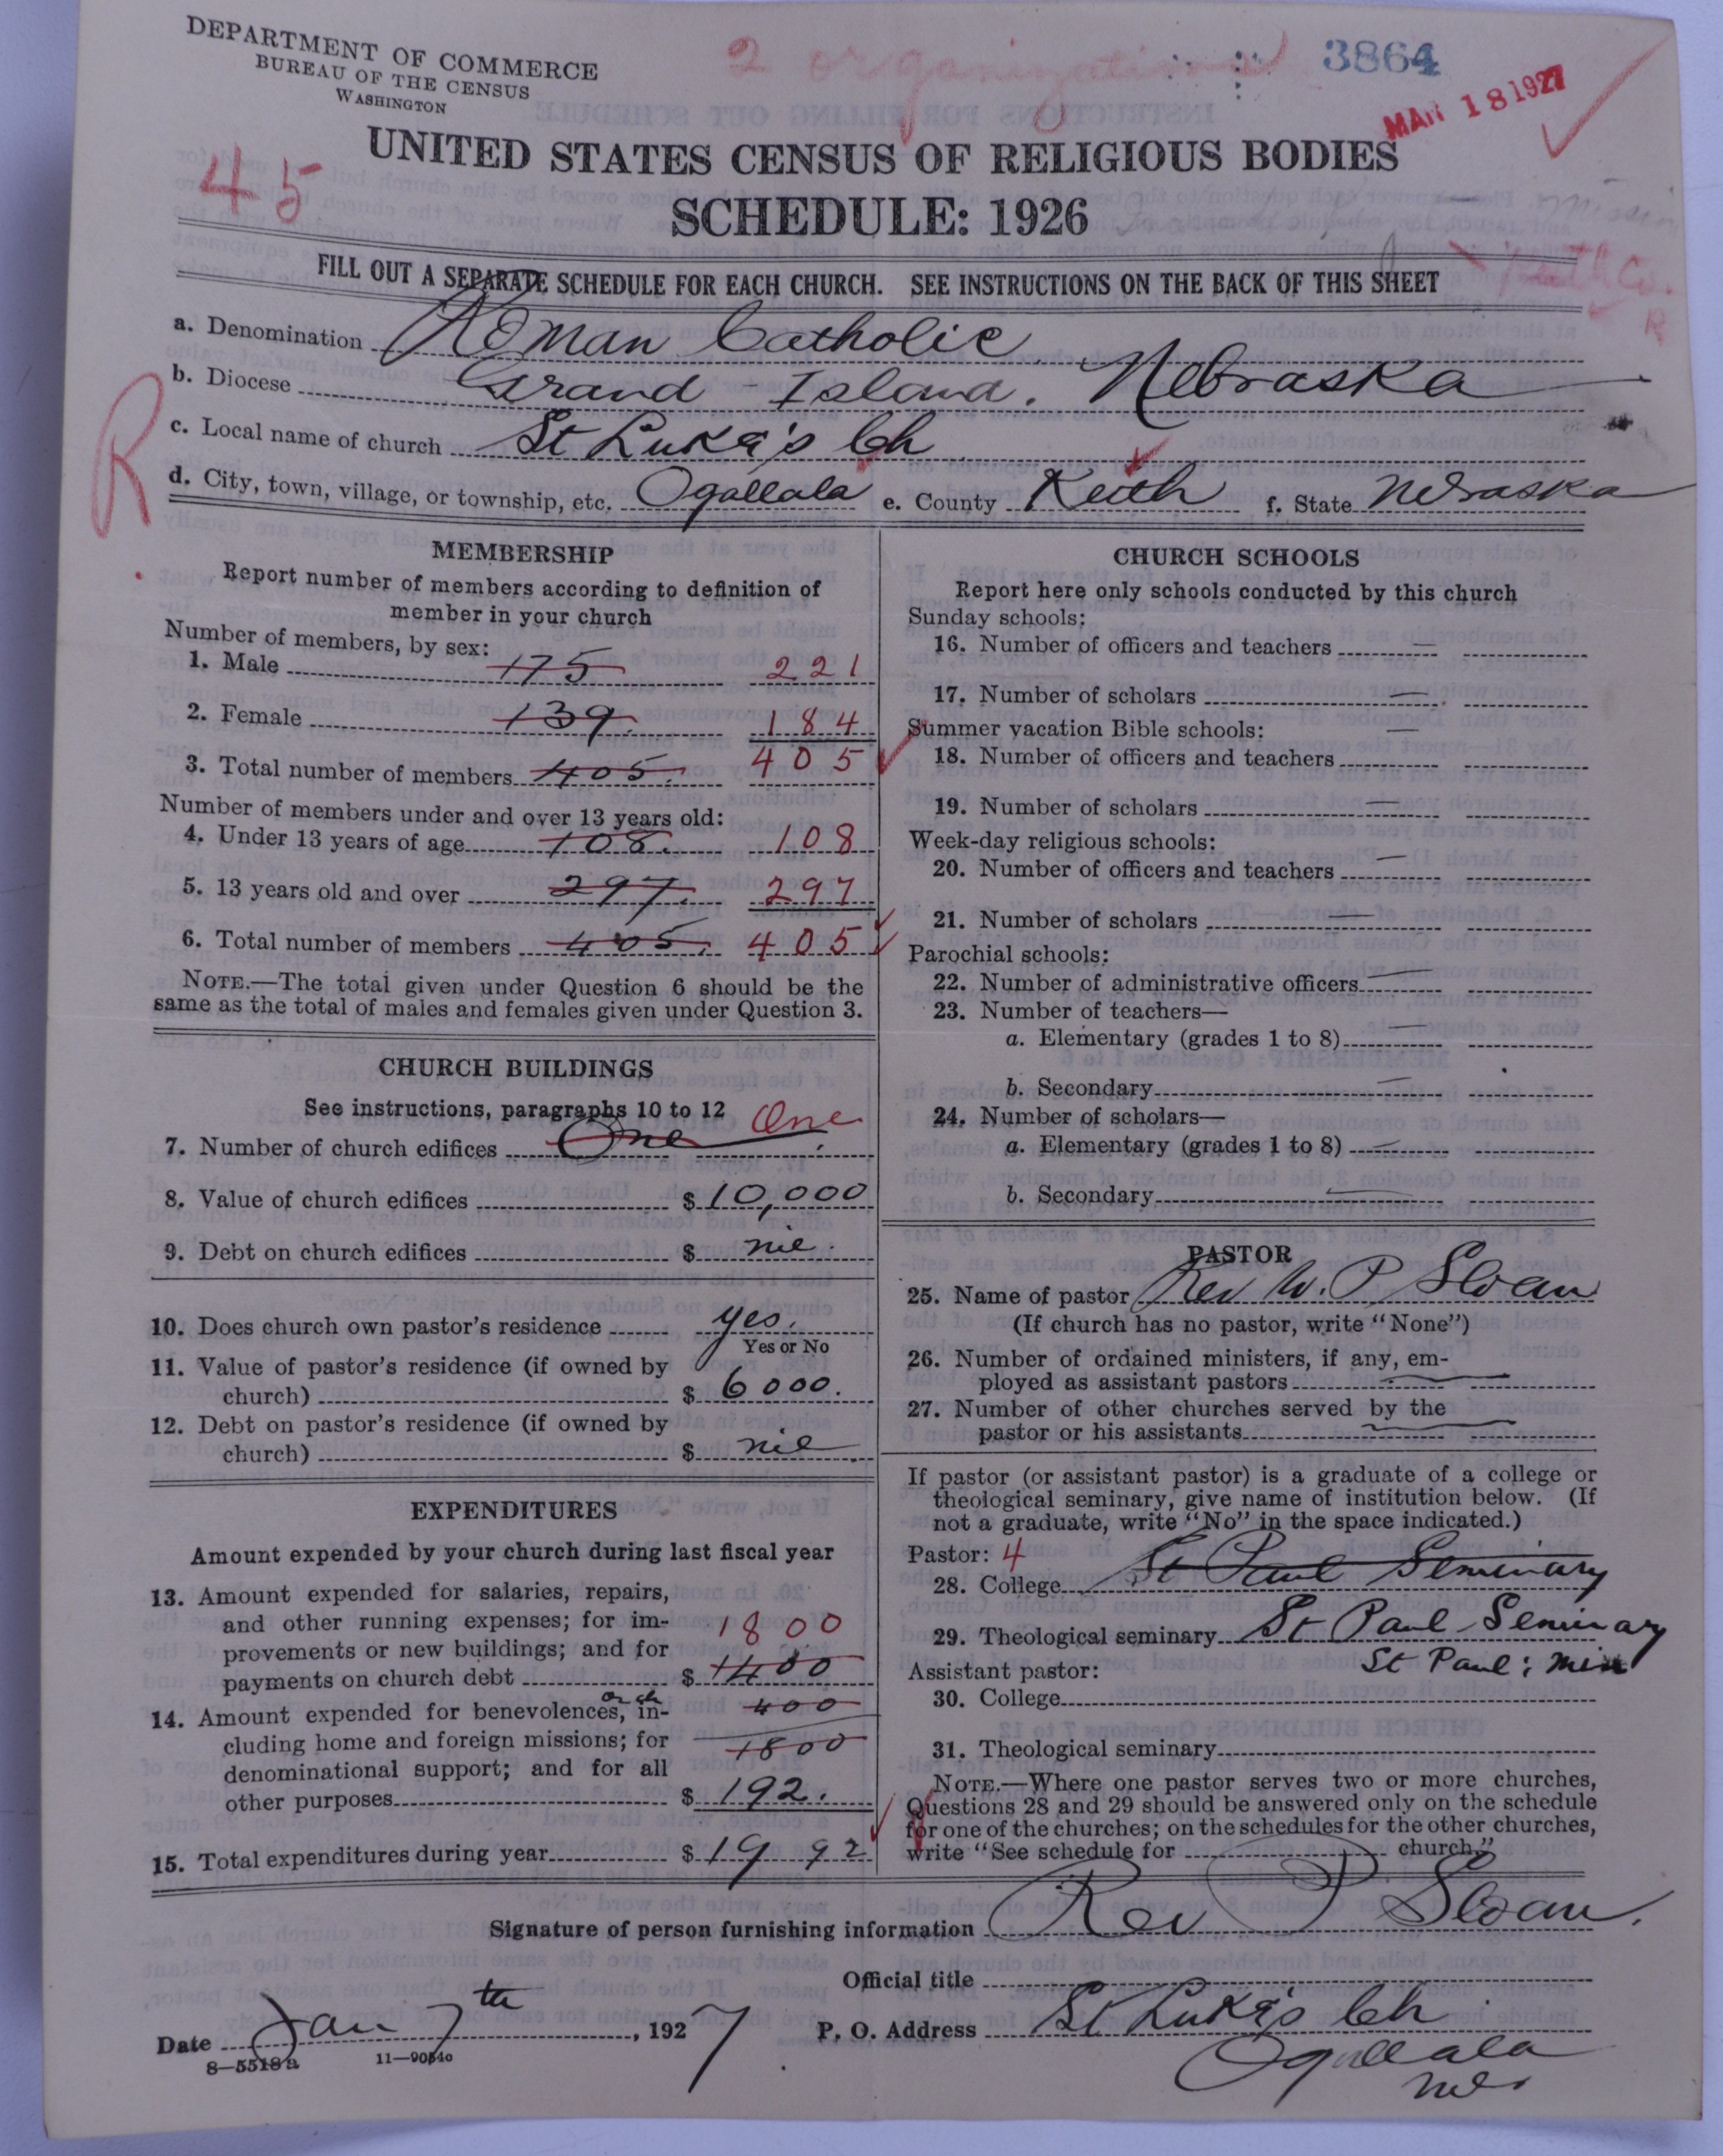 DEPARTMENT OF COMMERCE
BUREAU OF THE CENSUS
WASHINGTON
2 organizations
3864
MAR 18 1927
45
UNITED STATES CENSUS OF RELIGIOUS BODIES
SCHEDULE: 1926
mission
FILL OUT A SEPARATE SCHEDULE FOR EACH CHURCH. SEE INSTRUCTIONS ON THE BACK OF THIS SHEET
Keith Co.
R
a. Denomination Roman Catholic
b. Diocese Grand Island. Nebraska
c. Local name of church St Luke's Ch
d. City, town, village, or township, etc. Ogallala e. County Keith f. State Nebraska
R
MEMBERSHIP
Report number of members according to definition of
member in your church
Number of members, by sex:
1. Male 175 221
2. Female 139. 184
3. Total number of members 405. 405
Number of members under and over 13 years old:
4. Under 13 years of age 108. 108
5. 13 years old and over 297. 297
6. Total number of members 405. 405
NOTE.—The total given under Question 6 should be the
same as the total of males and females given under Question 3.
CHURCH BUILDINGS
See instructions, paragraphs 10 to 12
7. Number of church edifices One One
8. Value of church edifices $ 10,000
9. Debt on church edifices $ nil.
10. Does church own pastor's residence yes.
Yes or No
11. Value of pastor's residence (if owned by
church) $ 6000.
12. Debt on pastor's residence (if owned by
church) $ nil
EXPENDITURES
Amount expended by your church during last fiscal year
13. Amount expended for salaries, repairs,
and other running expenses; for im-
provements or new buildings; and for
payments on church debt $ 1400 1800
14. Amount expended for benevolences, in-
cluding home and foreign missions; for
denominational support; and for all
other purposes $ 192.
400
1800
15. Total expenditures during year $ 19 92
CHURCH SCHOOLS
Report here only schools conducted by this church
Sunday schools:
16. Number of officers and teachers —
17. Number of scholars —
Summer vacation Bible schools: —
18. Number of officers and teachers
19. Number of scholars —
Week-day religious schools:
20. Number of officers and teachers —
21. Number of scholars —
Parochial schools:
22. Number of administrative officers —
23. Number of teachers—
a. Elementary (grades 1 to 8) —
b. Secondary —
24. Number of scholars—
a. Elementary (grades 1 to 8) —
b. Secondary —
PASTOR
25. Name of pastor Rev W. P. Sloan
(If church has no pastor, write "None")
26. Number of ordained ministers, if any, em-
ployed as assistant pastors —
27. Number of other churches served by the
pastor or his assistants —
If pastor (or assistant pastor) is a graduate of a college or
theological seminary, give name of institution below. (If
not a graduate, write "No" in the space indicated.)
Pastor: 4
28. College St Paul Seminary
29. Theological seminary St Paul Seminary
St Paul; Min
Assistant pastor:
30. College
31. Theological seminary
NOTE.—Where one pastor serves two or more churches,
Questions 28 and 29 should be answered only on the schedule
for one of the churches; on the schedules for the other churches,
write "See schedule for church."
Signature of person furnishing information Rev P Sloan.
Official title
Date Jan 7th, 1927
P. O. Address St Luke's Ch
Ogallala
Neb
8—5518a 11—9054c